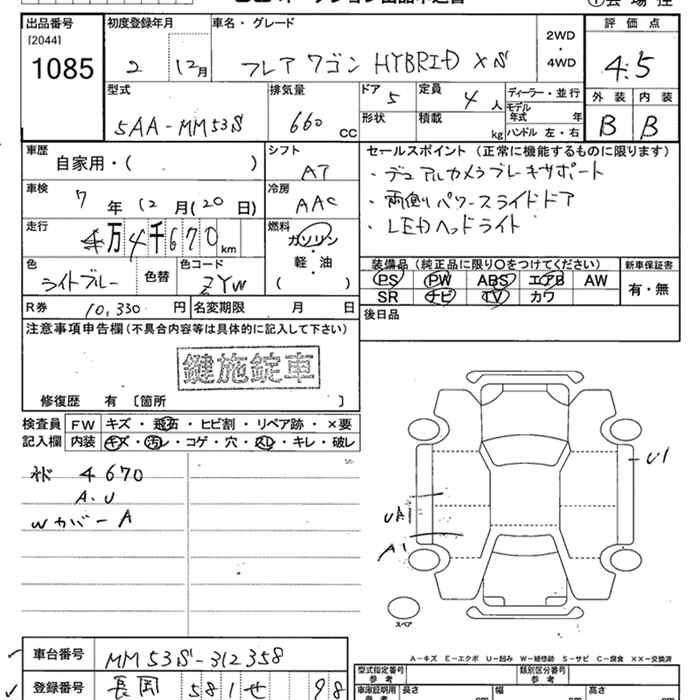 出品番号
[2044]
1085
初度登録年月
2 12月
車名・グレード
フレアワゴン HYBRID XS
2WD
・
4WD
評価点
4.5
外装 内装
B B
型式
5AA-MM53S
排気量
660 CC
ドア 5
定員 4 人
形状
積載 kg
ディーラー・並行
モデル年式 年
ハンドル 左・右
車歴
自家用・( )
シフト
AT
車検
7年12月(20日)
冷房
AAC
走行
万4千670km
燃料
ガソリン
軽・油
( )
色
ライトブルー
色替
色コード
ZYW
R券 10,330円
名変期限 月 日
セールスポイント(正常に機能するものに限ります)
・デュアルカメラブレーキサポート
・両側パワースライドドア
・LEDヘッドライト
装備品(純正品に限り○をつけてください)
PS PW ABS エアB AW
SR ナビ TV カワ
新車保証書
有・無
後日品
注意事項申告欄(不具合内容等は具体的に記入して下さい)
鍵施錠車
修復歴 有 [箇所 ]
検査員記入欄
FW キズ・飛石・ヒビ割・リペア跡・×要
内装 キズ・汚レ・コゲ・穴・スレ・キレ・破レ
4670
A.U
Wカバー A
U1
UA1
A1
スペア
A-キズ E-エクボ U-凹み W-補修跡 S-サビ C-腐食 ××-交換済
車台番号 MM53S-312358
登録番号 長岡 581 せ 98
型式指定番号
参考
類別区分番号
参考
車庫証明用
参考
長さ cm
幅 cm
高さ cm